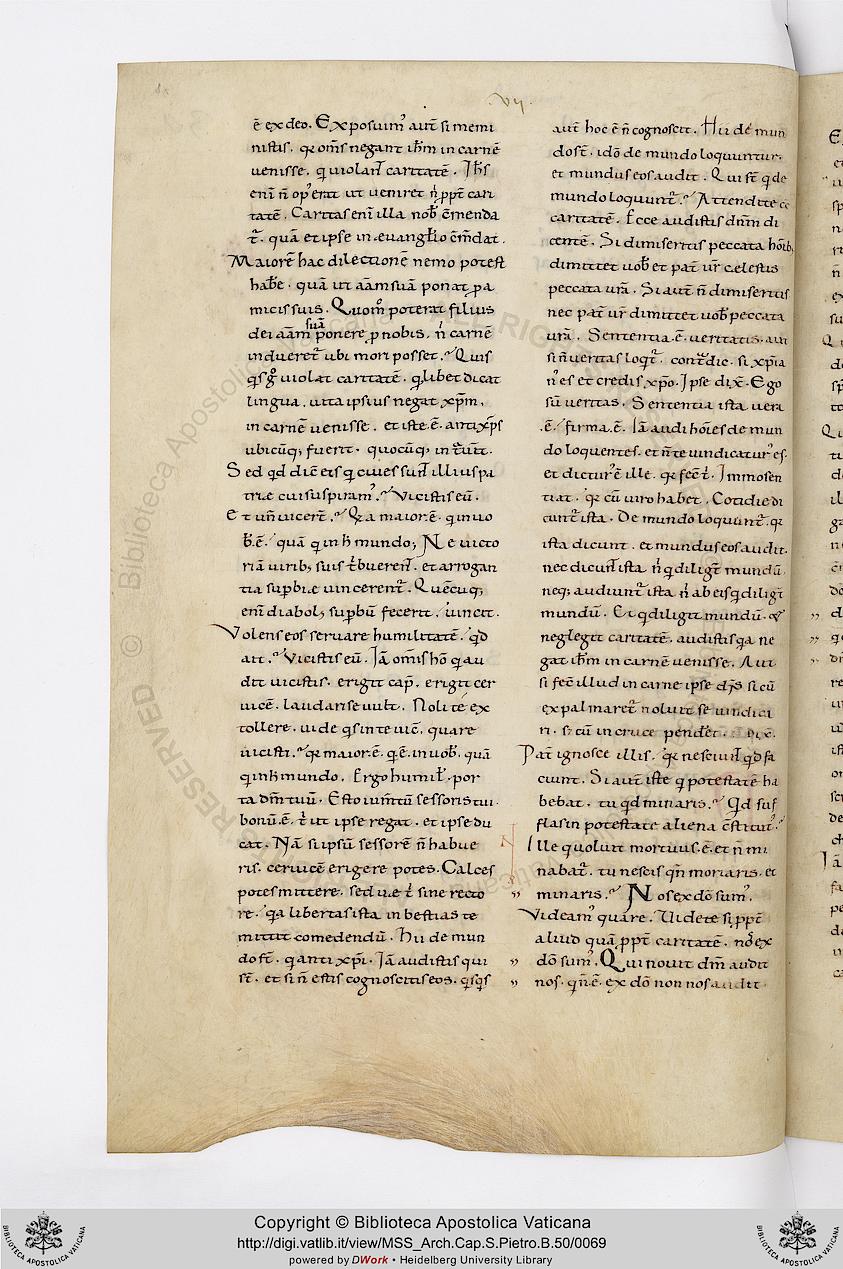 .vij.
ē ex deo. Exposuim᾽ aut̄ si memi
nistis, qr om̄s negant ihm̄ in carnē
venisse, qui violan̄t caritatē. Ihs̄
enī n̄ op᾽erat ut veniret n̄ ppt̄ cari
tatē. Caritas enī illa nob̄ c̄menda
t̄. quā et ipse in evanglio c̄m̄dat.
Maiorē hac dilectionē nemo potest
hab̄e. quā ut aām suā ponat p a
micis suis. Quom̄ poterat filius
dei aām suā ponere p nobis, n̄ carnē
indueret̄ ubi mori posset. Quis
qsg̊ violat caritatē. qlibet dicat
lingua, vita ipsius negat xp̄m,
in carnē venisse. et iste ē. antixp̄s
ubicūq; fuerit. quocūq; int̄vīt.
Sed qd dic̄ eis q cives sun̄t illius pa
triæ cui suspiram᾽. Vicistis eū.
Et un̄ vicer̄t. Qa maior ē. q in vo
b̄. ē. quā q in h̄ mundo; Ne victo
riā virib; suis t̄buerent̄. et arrogan
tia supbiæ vincerent̄. Quēcūq;
enī diabol; supbū fecerit. vincit.
Volens eos servare humilitatē. qd
ait. Vicistis eū. Iā omis hō q au
dit vicistis. erigit cap᾽. erigit cer
vicē. laudari se vult. Noli te ex
tollere. vide q̄s in te vic̄. quare
vicisti. qr maior. ē. q̄. ē. in vob᾽. quā
q in h̄ mundo. Ergo humil᾽. por
ta dn̄m tuū. Esto ium̄tū sessoris tui.
bonū. ē. t̄ ut ipse regat. et ipse du
cat. Nā si ipsū sessorē n̄ habue
ris. cervicē erigere potes. Calces
potes mittere. sed væ t̄ sine recto
re. qa libertas ista in bestias te
mittit comedendū. Hii de mun
do st̄. q antixp̄i. Iā audistis qui
st̄. et si n̄ estis cognoscitis eos. qsqs
aut̄ hoc ē n̄ cognoscit. Hii de mun
do st̄. idō de mundo loquuntur.
et mundus eos audit. Qui st̄ q de
mundo loquunt̄. Attendite
caritatē. Ecce audistis dn̄m di
centē. Si dimiseritis peccata hoīb;
dimittet vob̄ et pat̄ vr̄ cælestis
peccata vrā. Si aut̄ n̄ dimiseritis
nec pat̄ vr̄ dimittet vob̄ peccata
vrā. Sententia. ē. veritatis. aut
si n̄ veritas loqt̄. cont̄dic. si xp̄ia
n᾽ es et credis xp̄o. Ipse dix̄. Ego
sū veritas. Sententia ista vera
.ē. firma. ē. Iā audi hoīes de mun
do loquentes. et n̄ te vindicatur᾽ es.
et dictur᾽ ē ille. qr fec̄ t̄. Immo sen
tiat. qr cū viro habet. Cotidie di
cunt̄ ista. De mundo loquunt̄. qr
ista dicunt. et mundus eos audit.
nec dicun̄t ista n̄ q diligt̄ mundū.
neq; audiunt̄ ista n̄ ab eis q diligt̄
mundū. Et q diligit mundū. &
neglegit caritatē. audistis qa ne
gat ihm̄ in carnē venisse. Aut
si fec̄ illud in carne ipse dn̄s. si cū
expalmaret̄ noluit se vindica
ri. si cū in cruce penderet. dix̄.
Pat̄ ignosce illis. qr nesciun̄t qd fa
ciunt. Si aut̄ iste q potestatē ha
bebat. tu qd minaris. Qd suf
flas in potestate aliena c̄stitut᾽.
Ille quoluit mortuus. ē. et n̄ mi
nabat̄. tu nescis qn̄ moriaris. et
minaris. Nos ex dō sum᾽.
Videam᾽ quare. Videte si ppt̄
aliud quā ppt̄ caritatē. nos ex
dō sum᾽. Qui novit dm̄ audit
nos. q n̄. ē. ex dō non nos audit.
Copyright © Biblioteca Apostolica Vaticana
http://digi.vatlib.it/view/MSS_Arch.Cap.S.Pietro.B.50/0069
powered by DWork • Heidelberg University Library